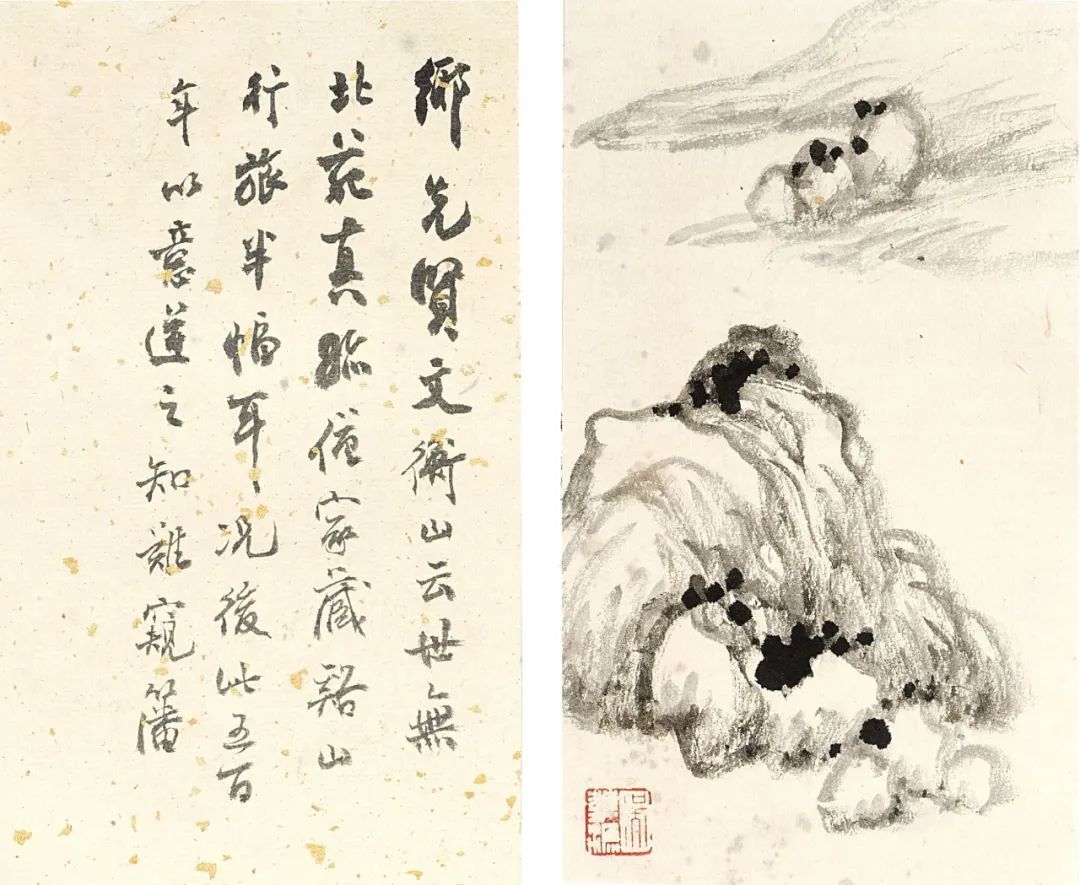 鄉先賢文衡山云世無
北苑真跡僅家藏谿山
行旅半幅耳況後此五百
年以意造之知難窺藩